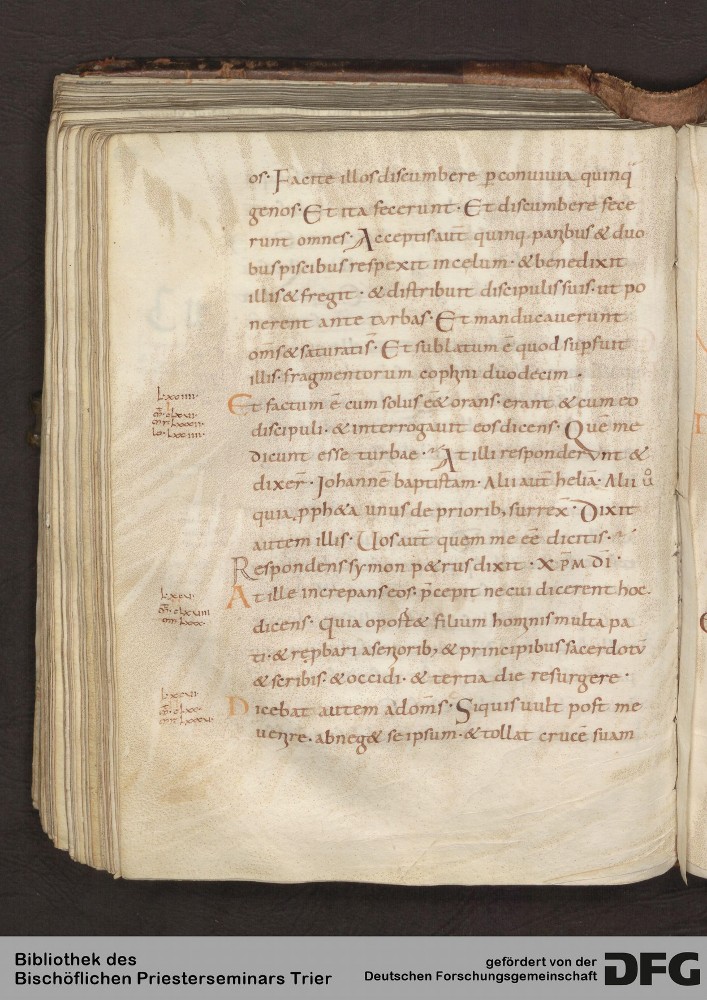 os· Facite illos discumbere p̲ conuiuia quinq̄
genos· Et ita fecerunt· Et discumbere fece
runt omnes· Acceptis aut̄ quinq· panibus & duo
bus piscibus respexit in celum· & benedixit
illis & fregit· & distribuit discipulis suis· ut po
nerent ante turbas· Et manducauerunt
om̄s & saturati s̄· Et sublatum ē quod sup̲fuit
illis· fragmentorum cophini duodecim·
lxxiiii·
Et factum ē cum solus e&̄ orans· erant & cum eo
discipuli· & interrogauit eos dicens· Quē me
dicunt esse turbae· At illi responderunt &
dixer̄· Iohannē baptistam· Alii aut̄ heliā· Alii ů
quia ꝓph&a unus de priorib; surrex̄· Dixit
autem illis· Uos aut̄ quem me eē dicitis·
Respondens symon p&rus dixit· xp̄m dī·
lxxv·
At ille increpans eos· p̄cepit ne cui dicerent hoc·
dicens· quia oport& filium hominis multa pa
ti· & rep̲bari aseniorib; & principibus sacerdotū
& scribis· & occidi· & tertia die resurgere·
lxxvi·
Dicebat autem ad om̄s· Siquis uult post me
uenire· abneg& se ipsum· & tollat crucē suam
Bibliothek des
Bischöflichen Priesterseminars Trier
gefördert von der
Deutschen Forschungsgemeinschaft
DFG